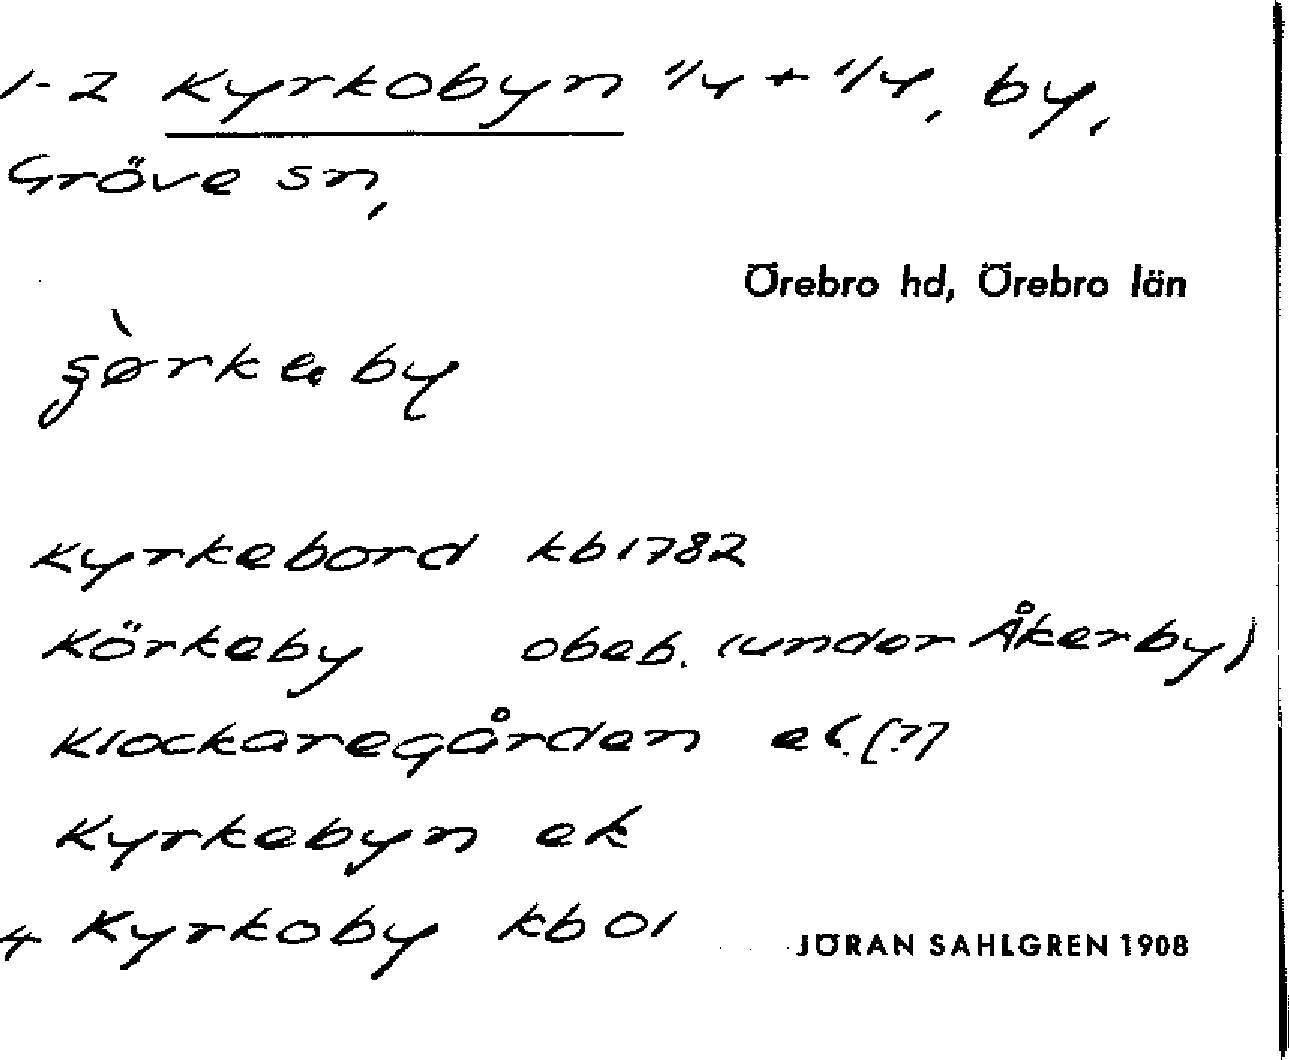 1-2 Kyrkobyn 1/4 + 1/4, by,
Gräve sn,
Örebro hd, Örebro län
Kyrkebord kb 1782
Körkeby obeb. (under Åkerby)
Klockaregården ek. [?]
Kyrkebyn ek
4 Kyrkoby kb 01
JÖRAN SAHLGREN 1908